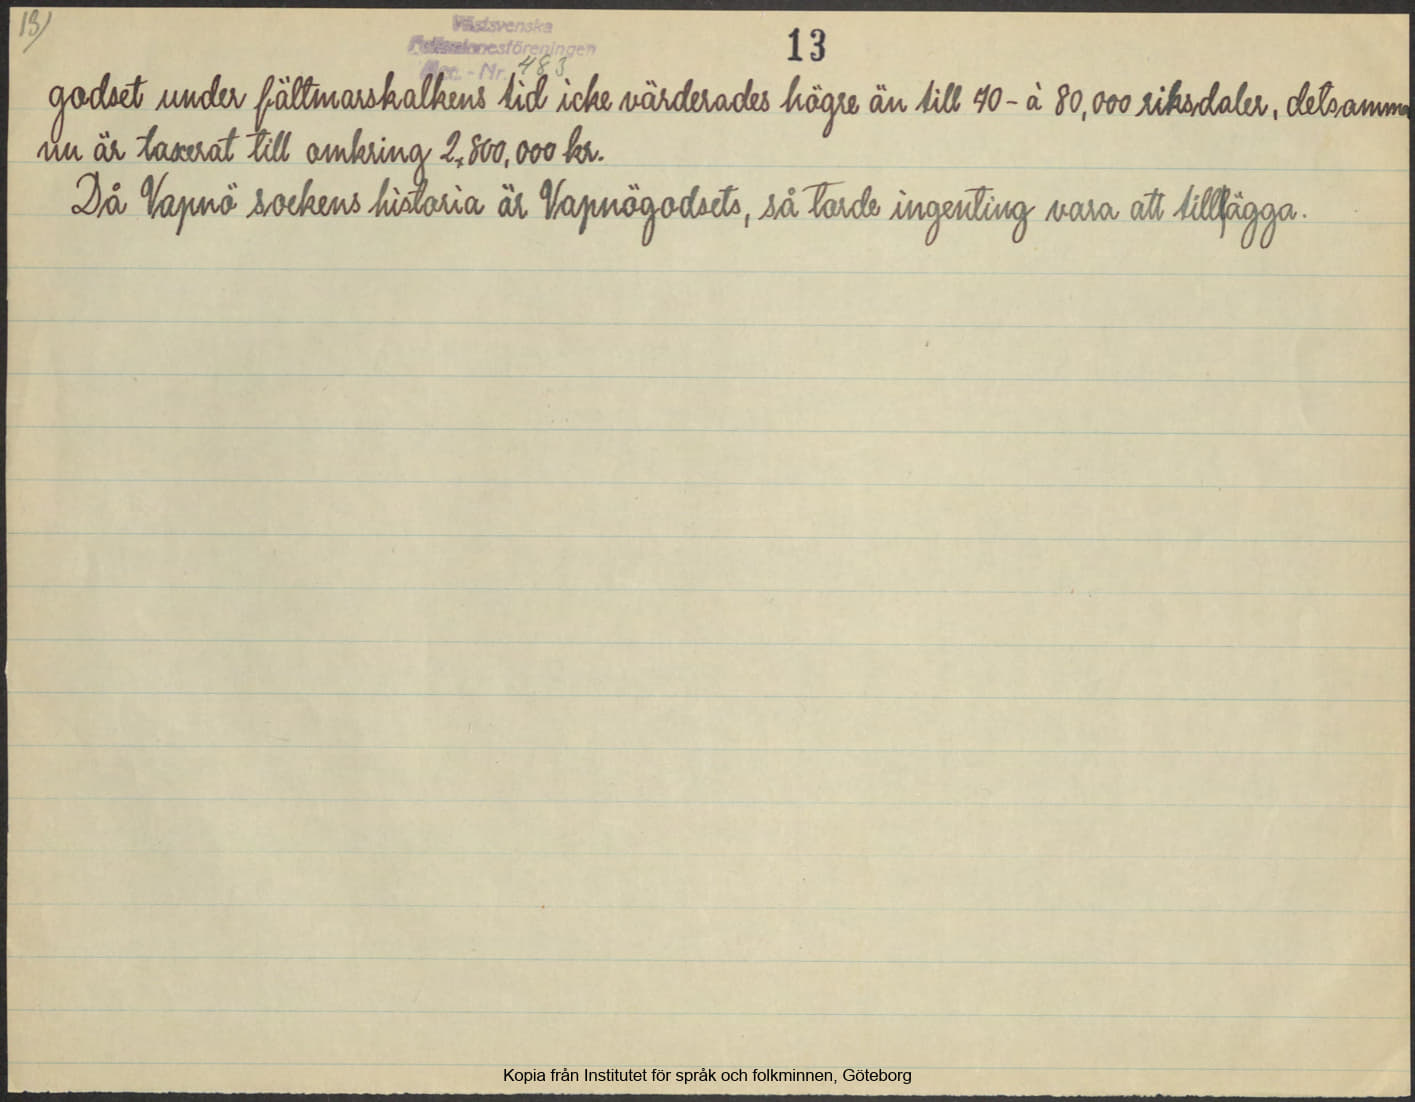 13)
Västsvenska
Folkminnesföreningen
Acc. - Nr. 483
13
godset under fältmarskalkens tid icke värderades högre än till 70 - à 80,000 riksdaler, detsamma
nu är taxerat till omkring 2,800,000 kr.
Då Vapnö sockens historia är Vapnögodsets, så torde ingenting vara att tillägga.
Kopia från Institutet för språk och folkminnen, Göteborg